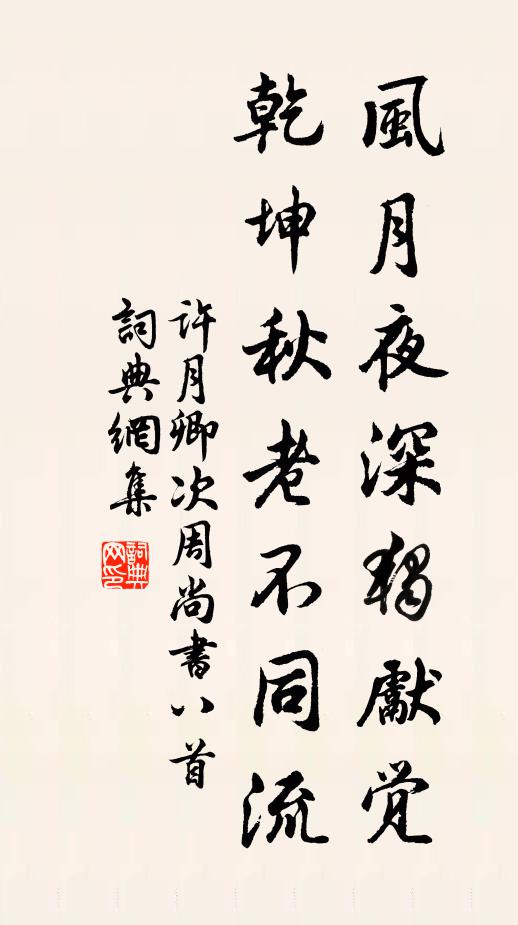 風月夜深獨獻覚
乾坤秋老不同流
許月卿次周尚書八首
詞典網集
詞典網印